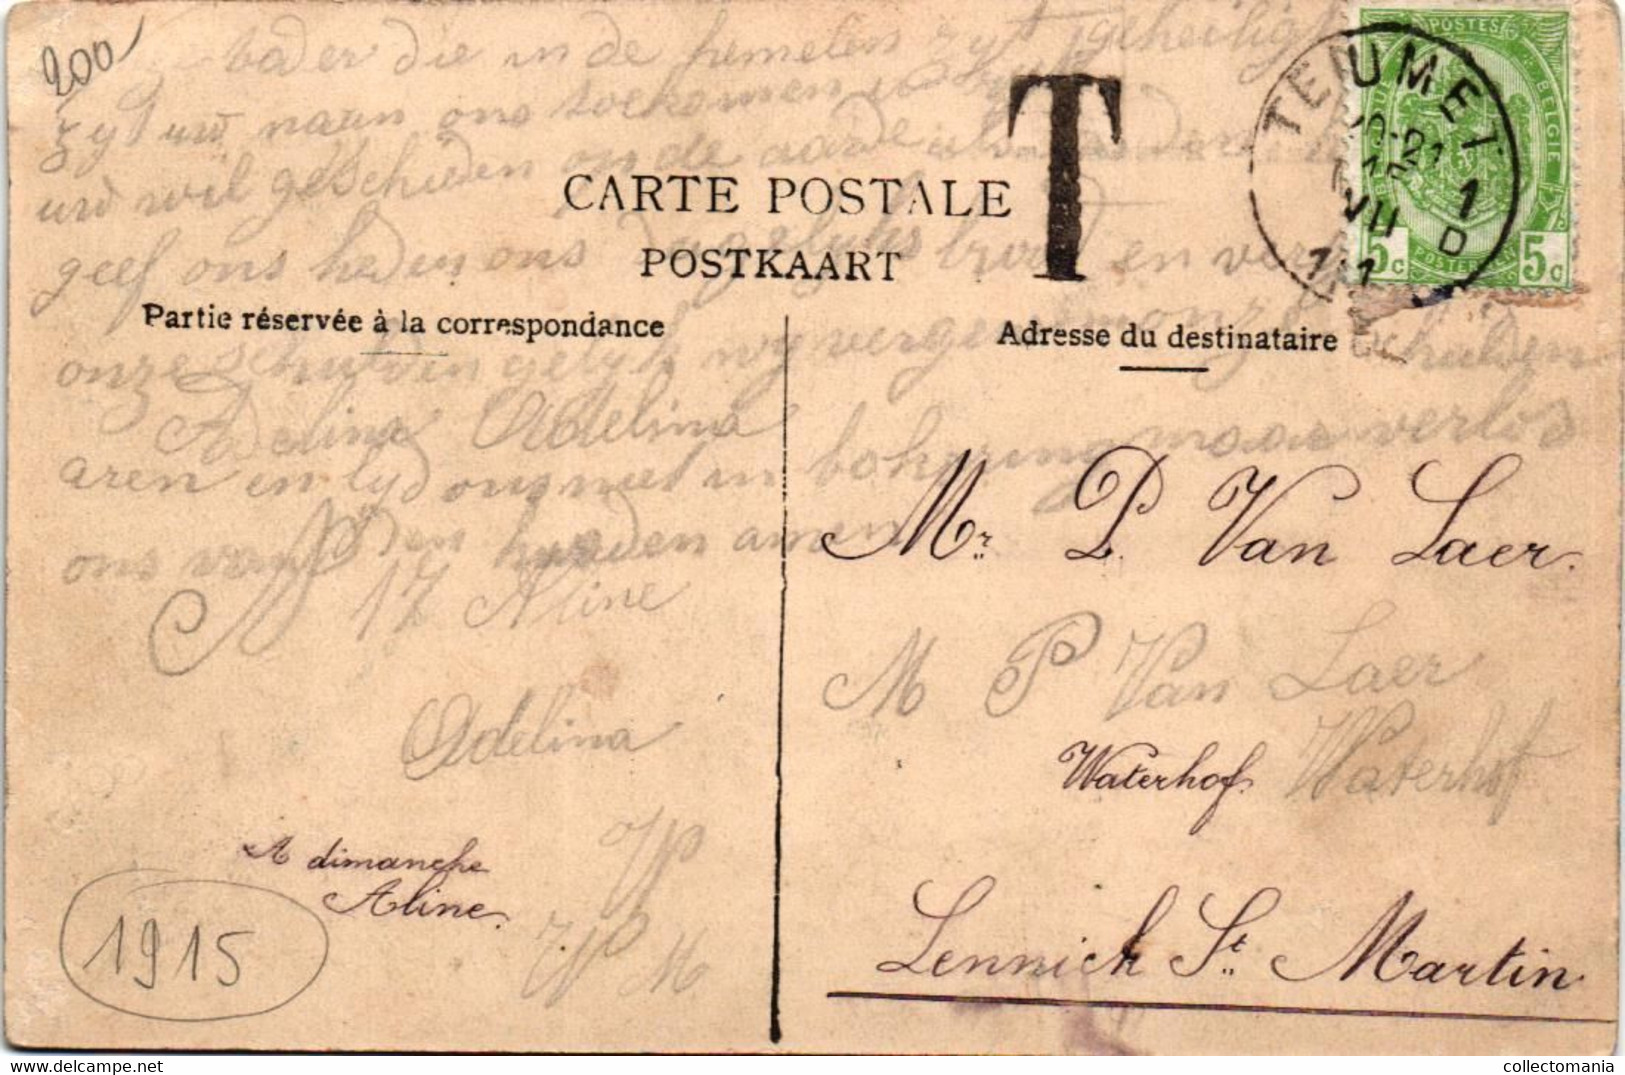 200
vader die in de hemelen zyt geheiligt
zyt uw naam ons toekomen uw ryk
uw wil geschieden on de aarde als in den
CARTE POSTALE
T
geef ons heden ons dagelyks brood en ver
POSTKAART
Partie réservée à la correspondance
Adresse du destinataire
onze schulden gelyk wy vergeven onze schulden
Adelina Adelina
aren en lyd ons niet in bekoring maar verlos
ons van den kwaden amen
17 Aline
Adelina
A dimanche
Aline.
1915
Mr. P. Van Laer.
M P Van Laer
Waterhof. Waterhof
Lennick St. Martin.
POSTES
BELGIE
5c 5c
20-21
15
VII
1
D
collectomania